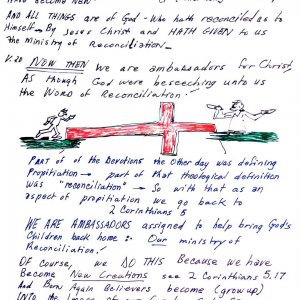 AND ALL THINGS are of God - Who hath reconciled us to
Himself - By Jesus Christ and HATH GIVEN to us
the Ministry of Reconciliation -
V.20 NOW THEN WE are ambassadors for Christ,
AS though God were beseeching unto us
the Word of Reconciliation!
Part of of the Devotions the Other day was defining
Propitiation → part of that theological definition
Was "reconciliation" → So with that as an
aspect of propitiation we go back to
2 Corinthians 5
WE ARE AMBASSADORS assigned to help bring God's
Children back home :- Our ministry of
Reconciliation.
OF Course, we DO THIS Because we have
Become New Creations see 2 Corinthians 5,17
And Born Again Believers become (grow up)